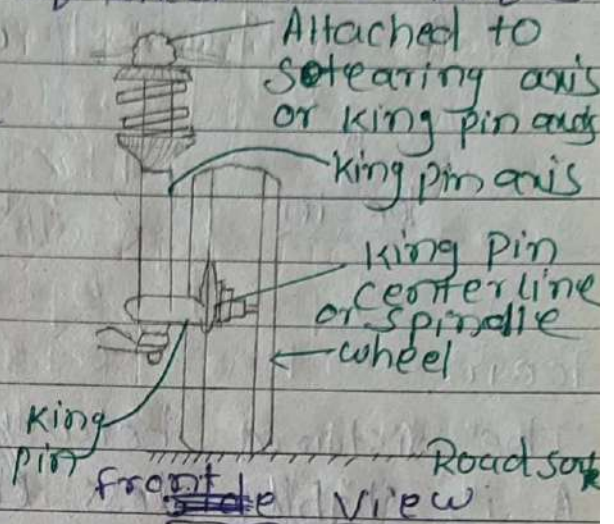 Attached to
Stearing axis
or King pin axis
King pin axis
King Pin
centerline
or spindle
wheel
King
pin
Road
front View